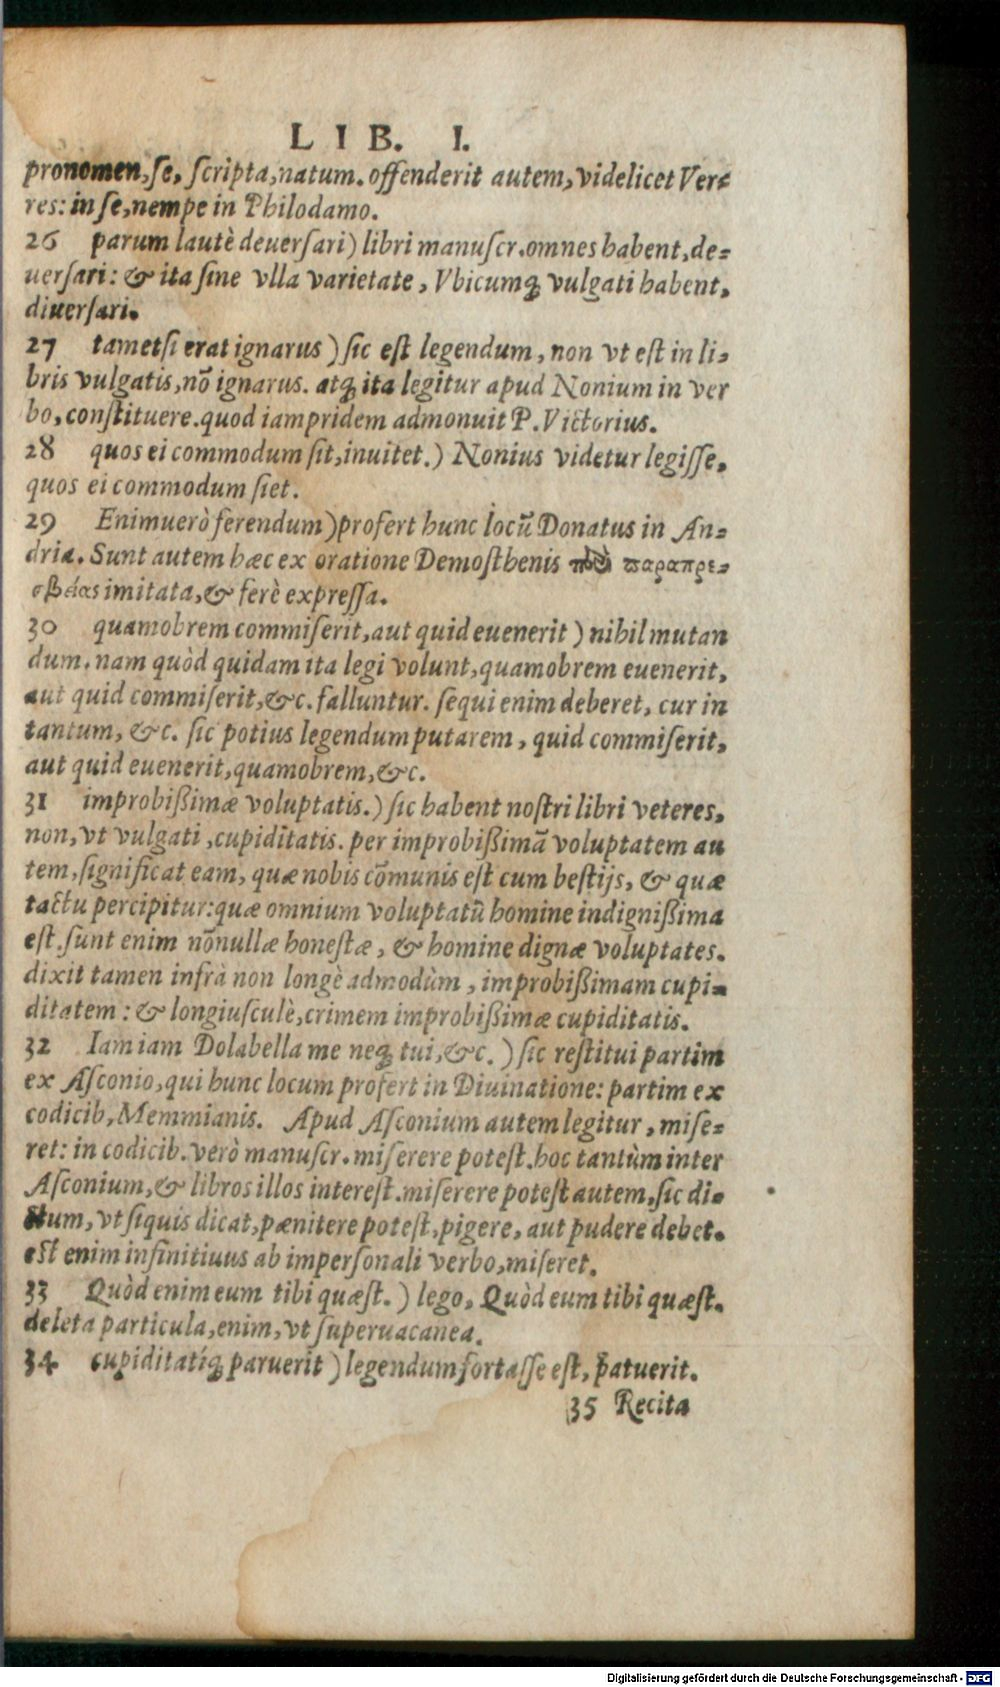 LIB. I.
pronomen, se, scripta, natum. offenderit autem, videlicet Ver-
res: in se, nempe in Philodamo.
26 parum lautè deuersari) libri manuscr. omnes habent, de-
uersari: & ita sine vlla varietate, Vbicumq; vulgati habent,
diuersari.
27 tametsi erat ignarus) sic est legendum, non vt est in li-
bris vulgatis, nō ignarus. atq; ita legitur apud Nonium in ver
bo, constituere. quod iampridem admonuit P. Victorius.
28 quos ei commodum sit, inuitet.) Nonius videtur legisse,
quos ei commodum siet.
29 Enimuerò ferendum) profert hunc locū Donatus in An-
dria. Sunt autem hæc ex oratione Demosthenis παραπρε-
σβείας imitata, & ferè expressa.
30 quamobrem commiserit, aut quid euenerit) nihil mutan
dum. nam quòd quidam ita legi volunt, quamobrem euenerit,
aut quid commiserit, &c. falluntur. sequi enim deberet, cur in
tantum, &c. sic potius legendum putarem, quid commiserit,
aut quid euenerit, quamobrem, &c.
31 improbißimæ voluptatis.) sic habent nostri libri veteres,
non, vt vulgati, cupiditatis. per improbißimā voluptatem au
tem, significat eam, quæ nobis cōmunis est cum bestijs, & quæ
tactu percipitur: quæ omnium voluptatū homine indignißima
est. sunt enim nōnullæ honestæ, & homine dignæ voluptates.
dixit tamen infrà non longè admodùm, improbißimam cupi-
ditatem: & longiusculè, crimem improbißimæ cupiditatis.
32 Iam iam Dolabella me neq; tui, &c.) sic restitui partim
ex Asconio, qui hunc locum profert in Diuinatione: partim ex
codicib. Memmianis. Apud Asconium autem legitur, mise-
ret: in codicib. verò manuscr. miserere potest. hoc tantùm inter
Asconium, & libros illos interest. miserere potest autem, sic di-
ctum, vt siquis dicat, pænitere potest, pigere, aut pudere debet.
est enim infinitiuus ab impersonali verbo, miseret.
33 Quòd enim eum tibi quæst.) lego, Quòd eum tibi quæst.
deleta particula, enim, vt superuacanea.
34 cupiditatíq; paruerit) legendum fortasse est, patuerit.
35 Recita
Digitalisierung gefördert durch die Deutsche Forschungsgemeinschaft - DFG